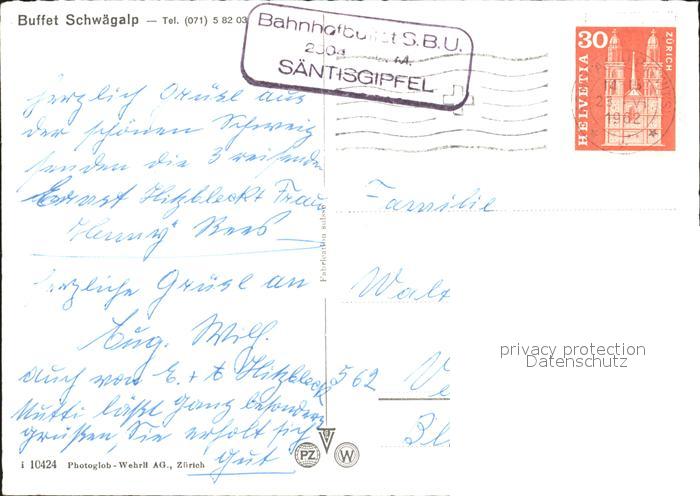 Buffet Schwägalp — Tel. (071) 5 82 03
Bahnhofbuffet S.B.U.
SÄNTISGIPFEL
HELVETIA 30 ZÜRICH
1962
Herzlich Grüße aus
der schönen Schweiz
senden die 3 reisenden
Ernst Hitzbleckt Frau
Henny Rees
Herzliche Grüße an
Eug. Wilh.
auch von E. + t Hitzbleck
Mutti läßt ganz besonders
grüßen, Sie erholt sich
gut
Fabrication suisse
Familie
Walt
562 V
Bl
privacy protection
Datenschutz
PZ W
i 10424 Photoglob-Wehrli AG., Zürich